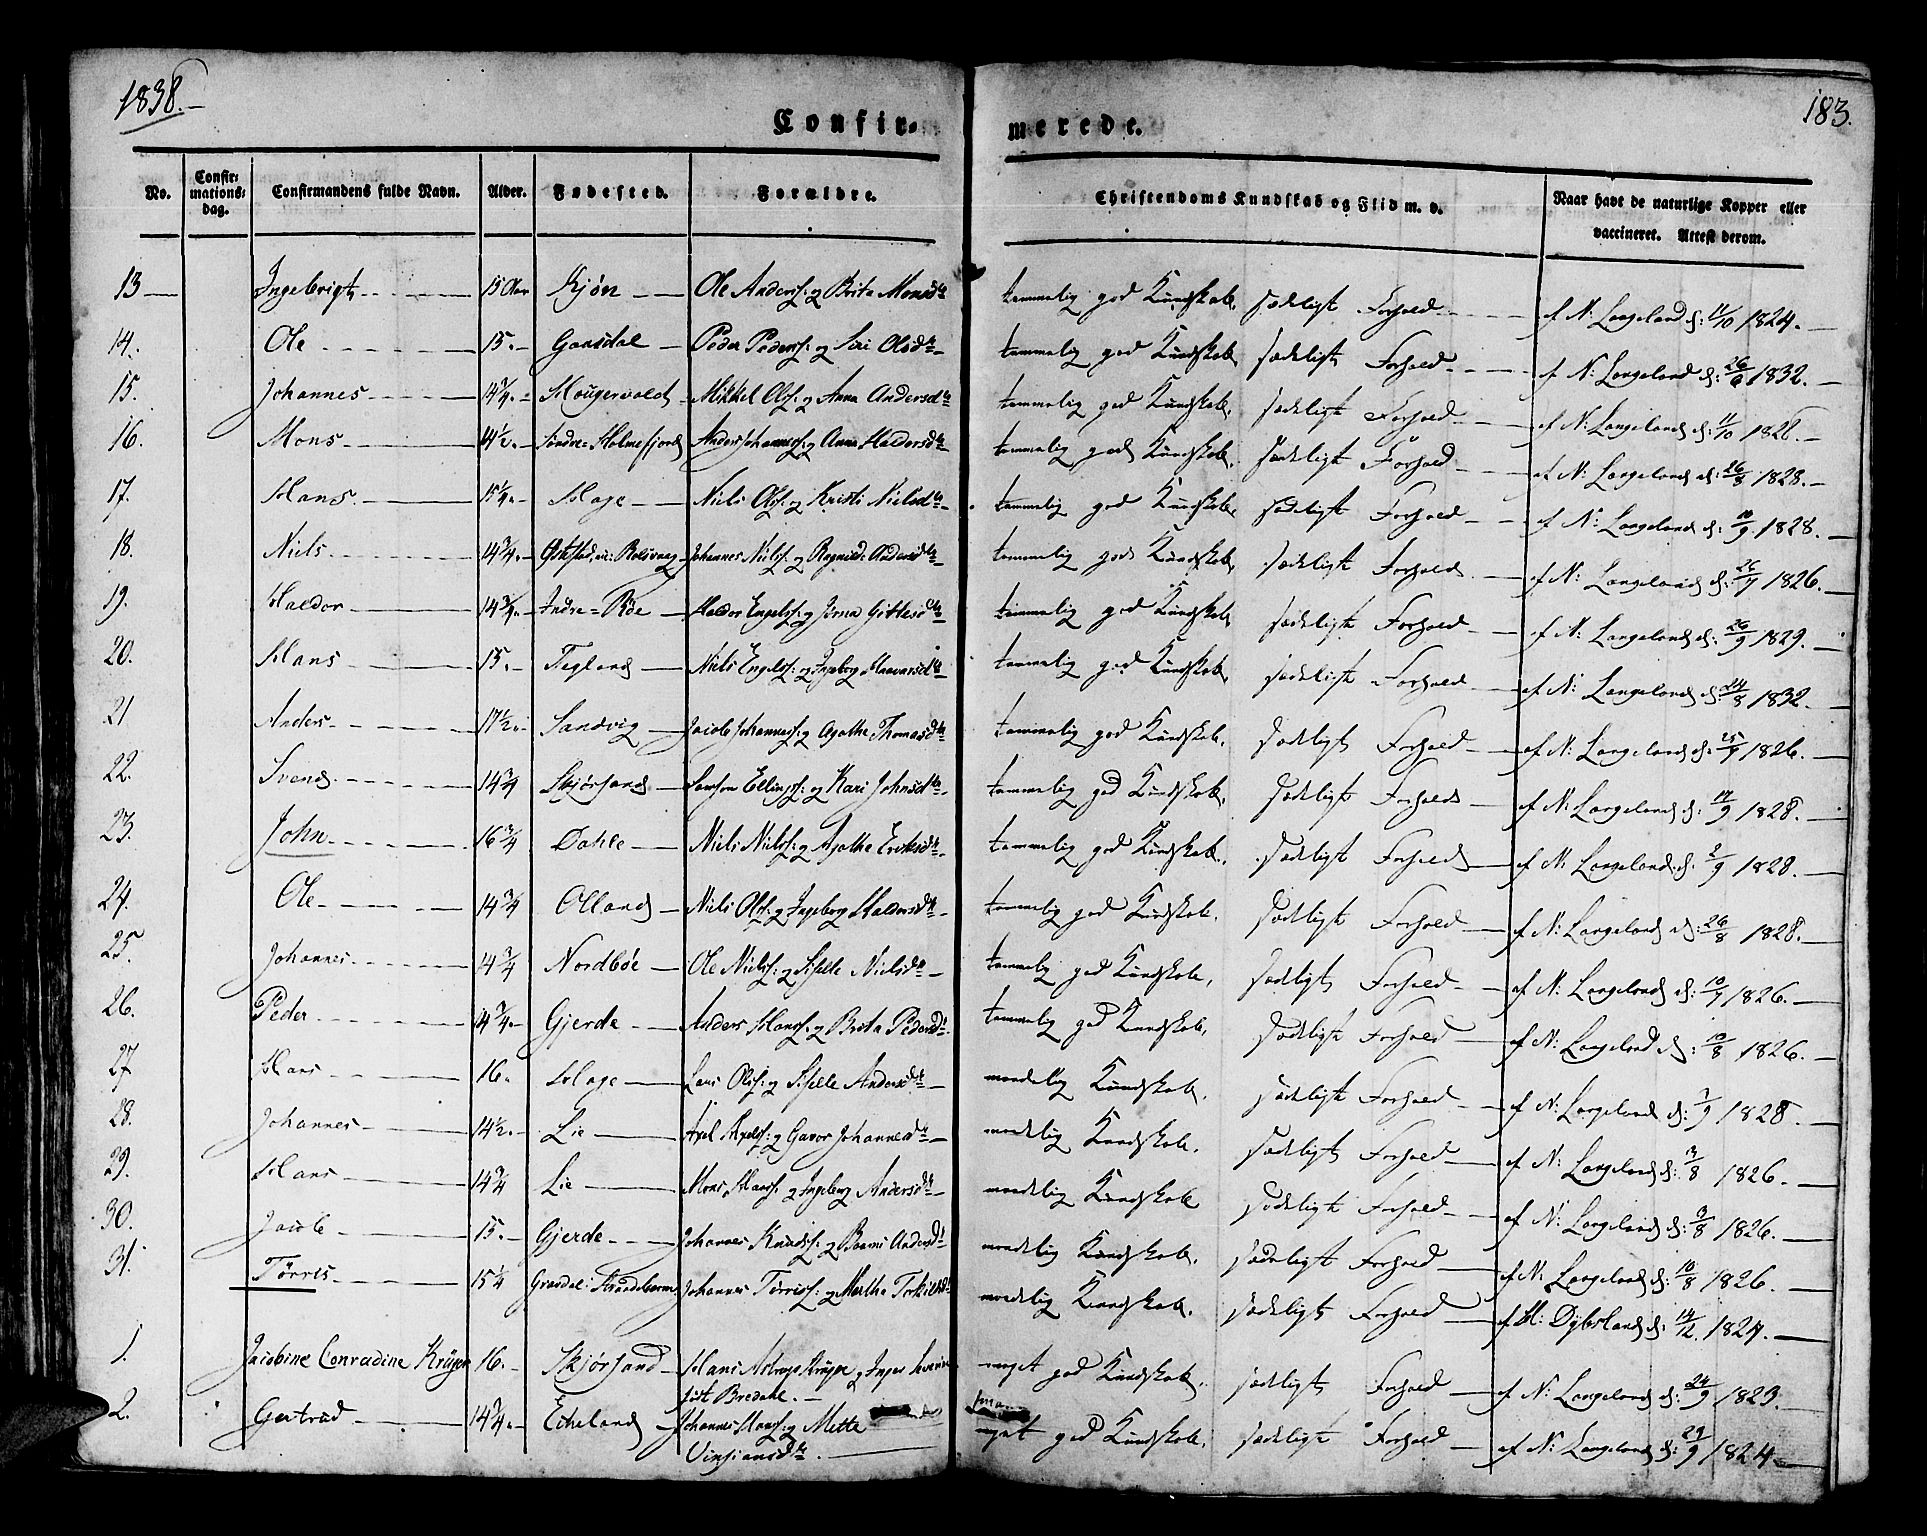 1838.
183.
Confir-
merede.
No.
Confir-
mations-
dag.
Confirmandens fulde Navn.
Alder.
Fødested.
Forældre.
Christendoms Kundskab og Flid m. v.
Naar havt de naturlige Kopper eller
vaccineret. Attest derom.
13 Ingebrigt 15 Aar Kjøn Ole Anderss: og Brita Monsdtr tammelig god Kundskab, sædeligt Forhold af N: Langeland d: 11/10 1824.
14. Ole 15. Gaasdal Peder Pederss: og Siri Olsdtr tammelig god Kundskab sædeligt Forhold af N: Langeland d: 26/6 1832.
15. Johannes 14 3/4 Mikkel Olss: og Anna Andersdtr tammelig god Kundskab, sædeligt Forhold af N: Langeland d: 11/10 1826.
16. Mons 14 1/2 Søndre-Holmefjord Anders Johanness: og Anna Haldorsdtr tammelig god Kundskab, sædeligt Forhold af N: Langeland d: 26/8 1828.
17. Hans 15 1/4 Hage Niels Olss: og Kristi Nielsdtr tammelig god Kundskab, sædeligt Forhold af N: Langeland d: 10/9 1828.
18. Niels 14 3/4 Johannes Nielss: og Andersdtr tammelig god Kundskab, sædeligt Forhold af N: Langeland d: 1826.
19. Haldor 14 3/4 Indre-Røe Haldor Engelss: og Gitlesdtr tammelig god Kundskab sædeligt Forhold af N: Langeland d: 26/9 1829.
20. Hans 15. Tegland Niels Engelss: og Ingeborg Haavarsdtr tammelig god Kundskab, sædeligt Forhold af N: Langeland d: 24/8 1832
21 Anders 17 1/2 Sandvig Jacob Johanness: og Agathe Thomasdtr tammelig god Kundskab, sædeligt Forhold af N: Langeland d: 25/9 1826.
22. Svend 14 3/4 Skjørsand Samson Ellingss: og Kari Johnsdtr tammelig god Kundskab, sædeligt Forhold af N: Langeland d: 1828.
23. John 16 3/4 Dahle Niels Nielss: og Agatha Eriksdtr tammelig god Kundskab, sædeligt Forhold af N: Langeland d: 2/9 1828.
24. Ole 14 3/4 Olland Niels Olss: og Ingeborg Haldorsdtr tammelig god Kundskab, sædeligt Forhold af N: Langeland d: 26/8 1828.
25. Johannes 14 3/4 Nordbøe Ole Nielss: og Siselle Nielsdtr tammelig god Kundskab, sædeligt Forhold af N: Langeland d: 1826.
26. Peder 14 3/4 Gjerde Anders Hanss: og Brita Pedersdtr tammelig god Kundskab, sædeligt Forhold af N: Langeland d: 10/8 1826.
27 Hans 16. Hage Lars Olss: og Siselle Andersdtr maadelig Kundskab, sædeligt Forhold af N: Langeland d: 1828.
28. Johannes 14 1/2 Lie Axel Axelss: og Johannesdtr maadelig Kundskab, sædeligt Forhold af N: Langeland d: 3/8 1826.
29. Hans 14 3/4 Lie Mons Hanss: og Ingeborg Andersdtr maadelig Kundskab sædeligt Forhold af N: Langeland d: 3/8 1826.
30. Jacob 15. Gjerde Johannes Knudss: og Andersdtr maadelig Kundskab, sædeligt Forhold af N: Langeland d: 10/8 1826.
31. Tørris 15 1/4 Johannes Tørriss: og Martha Torkildsdtr maadelig Kundskab, sædeligt Forhold af H: Dybsland d: 14/12 1824.
1. Jacobine Conradine Krüger 16. Skjørsand Hans Krüger og Inger meget god Kundskab, sædeligt Forhold af N: Langeland d: 24/9 1829.
Bredahl.
2. Gertrud 14 3/4 Echeland Johannes Hanss: og Mette meget god Kundskab, sædeligt Forhold af N: Langeland d: 29/9 1824.
Vinsiansdtr.